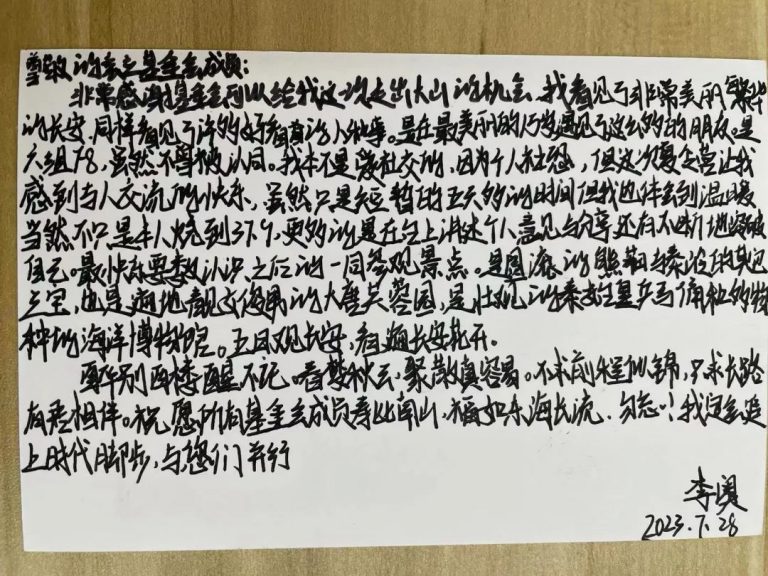 尊敬的 基金会成员:
非常感谢基金会可以给我这次走出大山的机会。我看见了非常美丽繁华
的长安,同样看见了许多好看有的人和事。是在最美丽的 遇见了这么多的朋友。是
六组78,虽然不曾被认同。我本不是爱社交的,因为个人社恐,但这次夏令营让我
感到与人交流的快乐,虽然只是短暂的五天的时间但我也体会到温暖
当然不只是本人烧到37.9,更多的是在台上讲述个人意见与分享还有不断地突破
自己。最快乐要数认识之后的一同参观景点。是圆滚的熊猫与 的
三宝,也是遍地靓女俊男的大唐芙蓉园,是壮观的秦始皇兵马俑和多物
种的海洋博物馆。五日观长安,看遍长安花开。
醉别西楼醒不记。春梦秋云,聚散真容易。不求前程似锦,只求长路
有君相伴。祝愿所有基金会成员寿比南山,福如东海长流,勿忘!我定会追
上时代脚步,与您们并行
李
2023.7.28